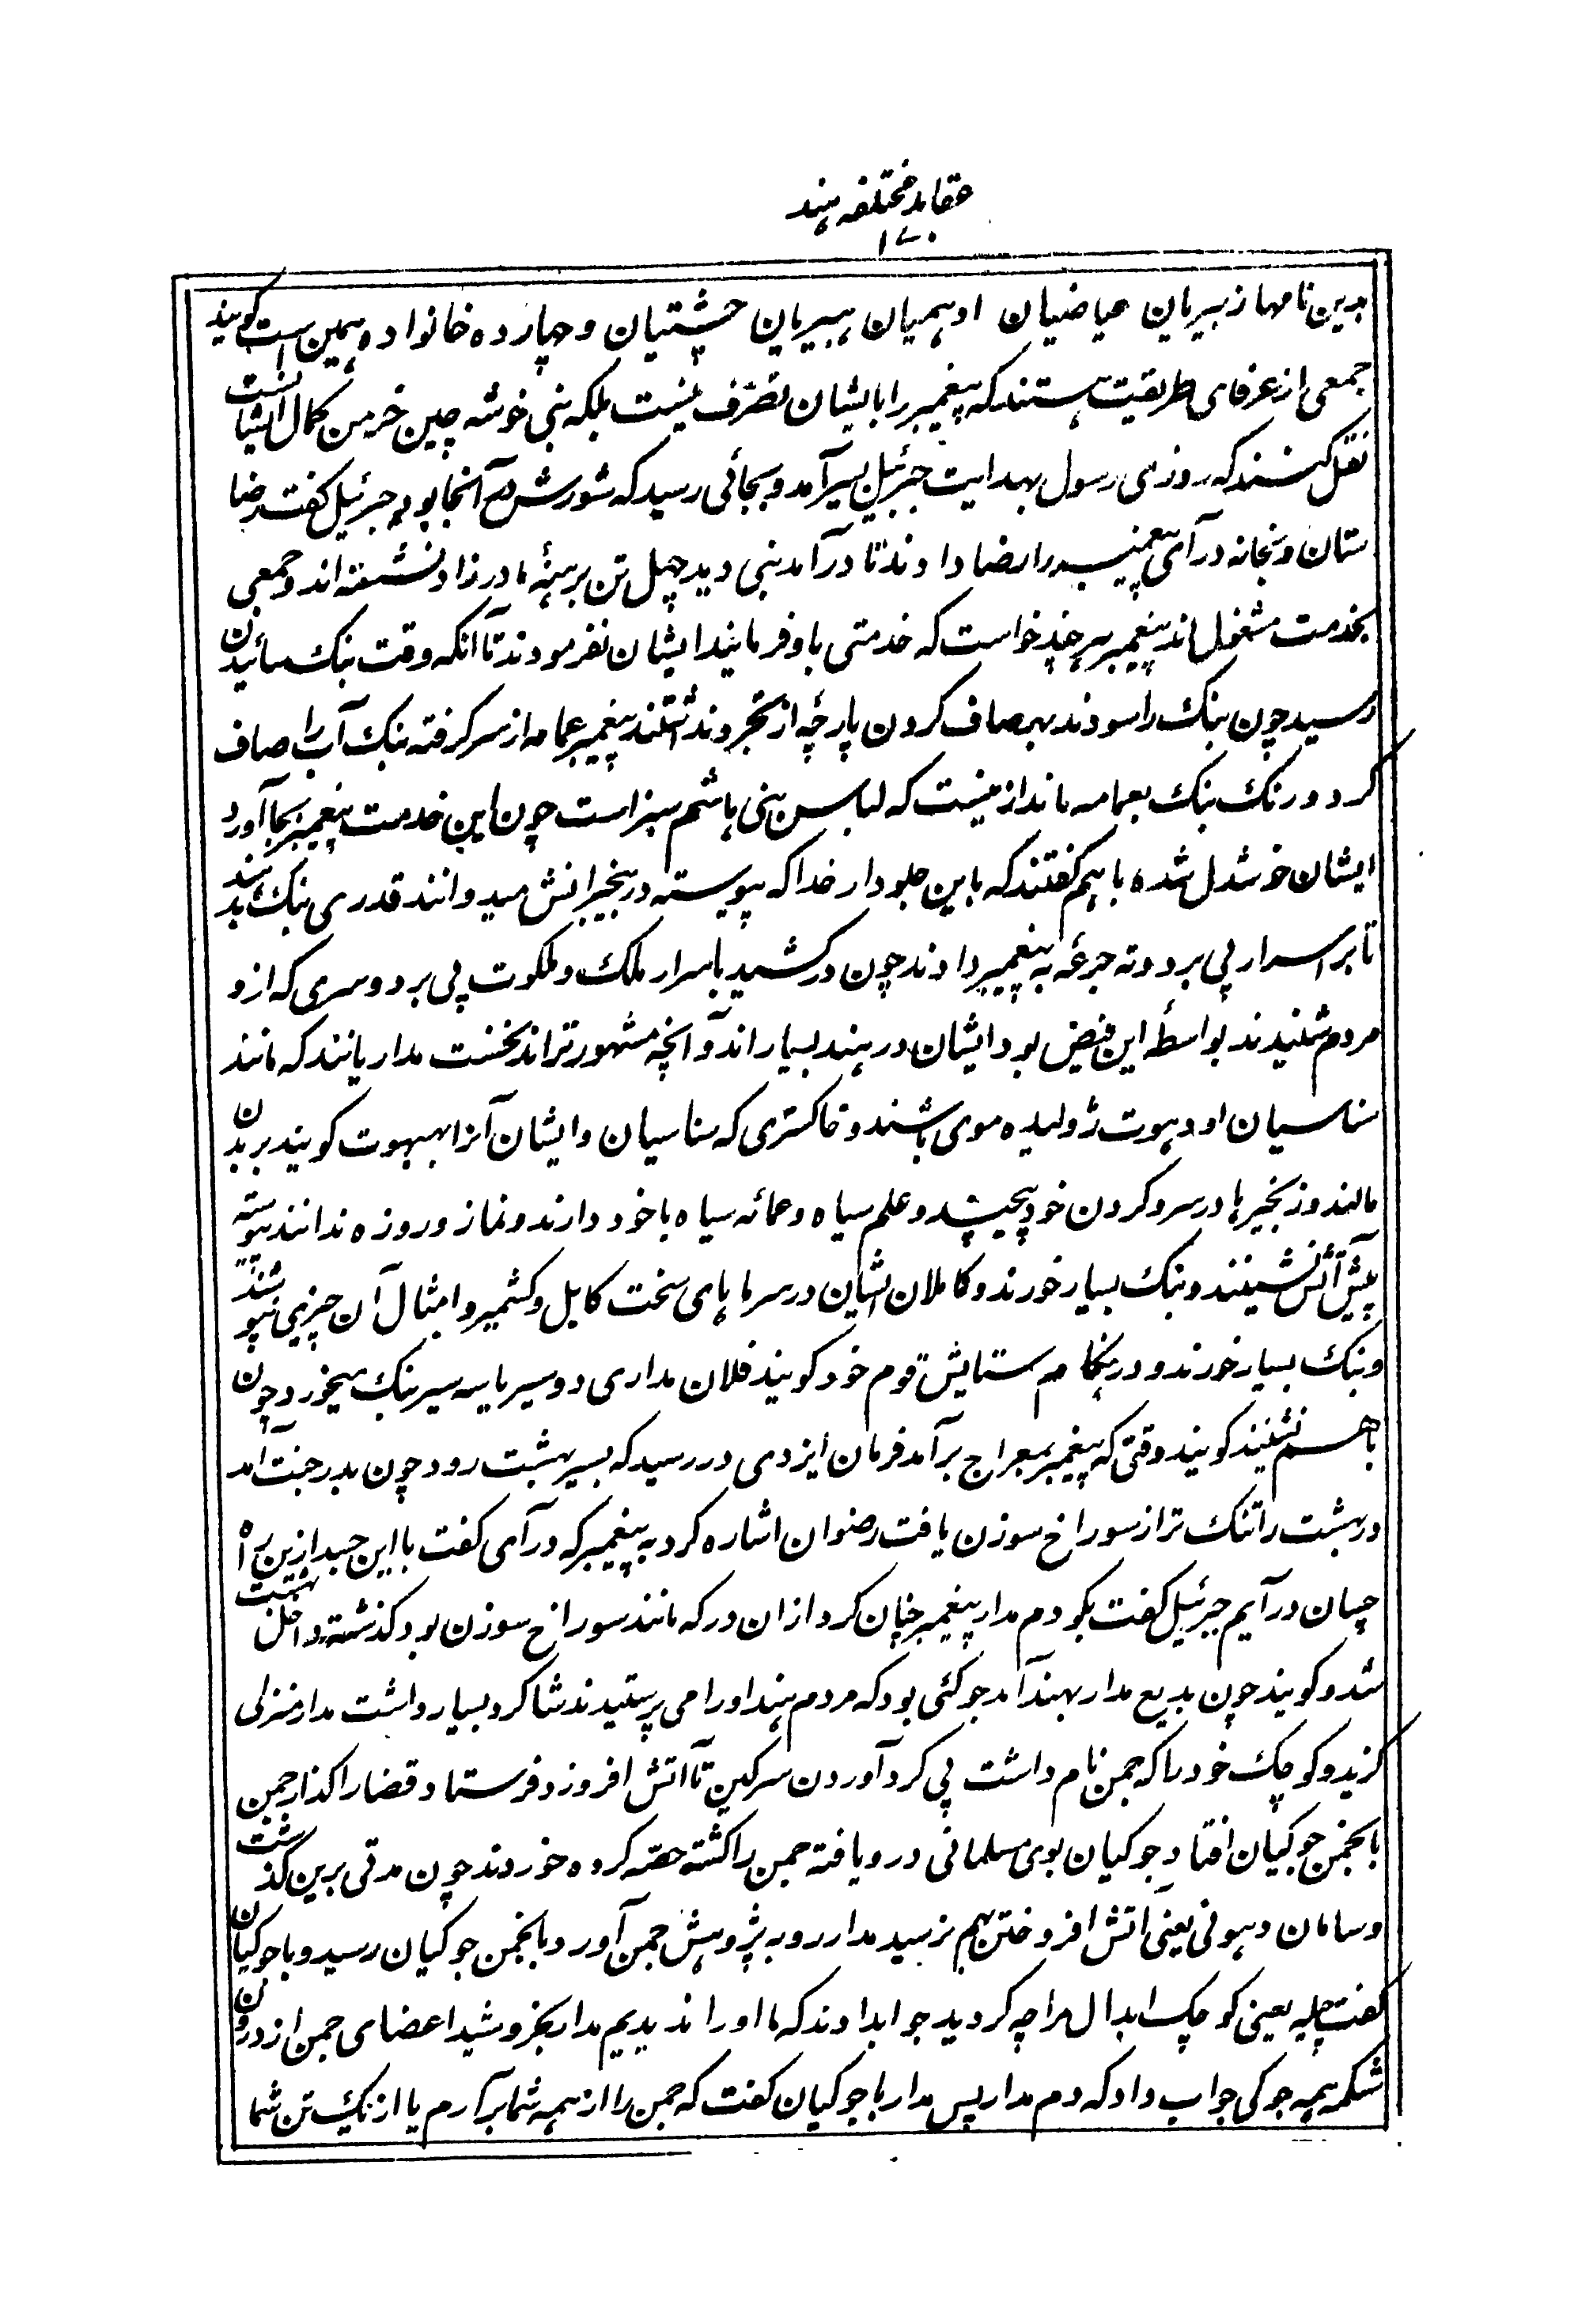 عقاید مختلفه هند
۱۷۰
بدین نامها زبیریان عیاضیان ادهمیان هبیریان چشتیان و چهارده خانواده همین است گویند
جمعی از عرفای طریقیت هستند که پیغمبر را بایشان تصرّف نیست بلکه نبی خوشه چین خرمن کمال ایشانست
نقل کنند که روزی رسول بهدایت جبرئیل بسیر آمد و بجائی رسید که شورش در آنجا بود جبرئیل گفت رضا
ستان و بخانه درآی پیغمبر را رضا دادند تا درآمد نبی دید چهل تن برهنهٔ مادرزاد نشسته اند و جمعی
بخدمت مشغول اند پیغمبر هر چند خواست که خدمتی باو فرمایند ایشان نفرمودند تا آنکه وقت بنک سائیدن
رسید چون بنک را سودند بهر صاف کردن پارچهٔ از تجرد نداشتند پیغمبر عمامه از سر گرفته بنک آب را صاف
کرد و رنک بنک بعمامه ماند ازینست که لباس بنی هاشم سبز است چون این خدمت پیغمبر بجا آورد
ایشان خوشدل شده با هم گفتند که باین جلودار خدا که پیوسته در بیخبرانش میدوانند قدری بنک بدهند
تا بر اسرار پی برد و ته جرعه به پیغمبر دادند چون درکشید باسرار ملک و ملکوت پی برد و سری که ازو
مردم شنیدند بواسطهٔ این فیض بود ایشان در هند بسیار اند و آنچه مشهورتراند نخست مداریانند که مانند
سناسیان اودهوت ژولیده موی باشند و خاکستری که سناسیان و ایشان آنرا بهبهوت گویند بر بدن
مالند و زنجیرها در سر و گردن خود پیچند و علم سیاه و عمامه سیاه با خود دارند و نماز و روزه ندانند پیوسته
پیش آتش نشینند و بنک بسیار خورند و کاملان ایشان در سرماهای سخت کابل و کشمیر و امثال آن چیزی نپوشند
و بنک بسیار خورند و در هنگام ستایش قوم خود گویند فلان مداری دو سیر یا سه سیر بنک میخورد چون
باهم نشینند گویند وقتی که پیغمبر بمعراج برآمد فرمان ایزدی در رسید که بسیر بهشت رود چون بدر جنت آمد
در بهشت را تنک تر از سوراخ سوزن یافت رضوان اشاره کرد به پیغمبر که درآی گفت با این جسد ازین راه
چسان درآیم جبرئیل گفت بگو دم مدار پیغمبر چنان کرد ازان در که مانند سوراخ سوزن بود گذشته داخل بهشت
شد و گویند چون بدیع مدار بهند آمد جوگئی بود که مردم هند او را می پرستیدند شاگرد بسیار داشت مدار منزلی
گزید و کوچک خود را که جمن نام داشت پی گرد آوردن سرگین تا آتش افروزد فرستاد قضا را گذار جمن
بانجمن جوگیان افتاد جوگیان بوی مسلمانی درو یافته جمن را کشته حصه کرده خوردند چون مدتی برین گذشت
و سامان دهونی یعنی آتش افروختن بهم نرسید مدار رو به پژوهش جمن آورد و بانجمن جوگیان رسید و با جوگیان
گفت چیله یعنی کوچک ابدال مرا چه کردید جواب دادند که ما او را ندیدیم مدار بخروشید اعضای جمن از درون
شکم همه جوگی جواب داد که دم مدار پس مدار با جوگیان گفت که جمن را از همه شما برآرم یا از یک تن شما